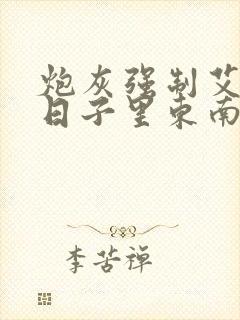 炮灰强制艾
日子里东南
李苦禅